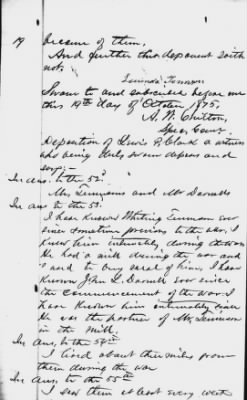 19 became of them,
And further this deponent saith
not.
Sworn to and subscribed before me
this 19th day of October 1875.
A. W. Shilton,
Spec. Com.
Deposition of Lewis P. Clark a witness
who being duly sworn deposes and
says:-
In ans to the 52d
Mr. Tennisons and Mr Darnalls
In ans to the 53d
I have known Whiting Tennison ever
since sometime previous to the war, I
knew him intimately during the war
He had a mill during the war and
I have
known John L. Darnall ever since
the commencement of the war. I
have known him intimately since
He was the partner of Mr. Tennison
in the mill.
In ans. to the 54th
I lived about three miles from
them during the war
In ans. to the 55th
I saw them at least every week